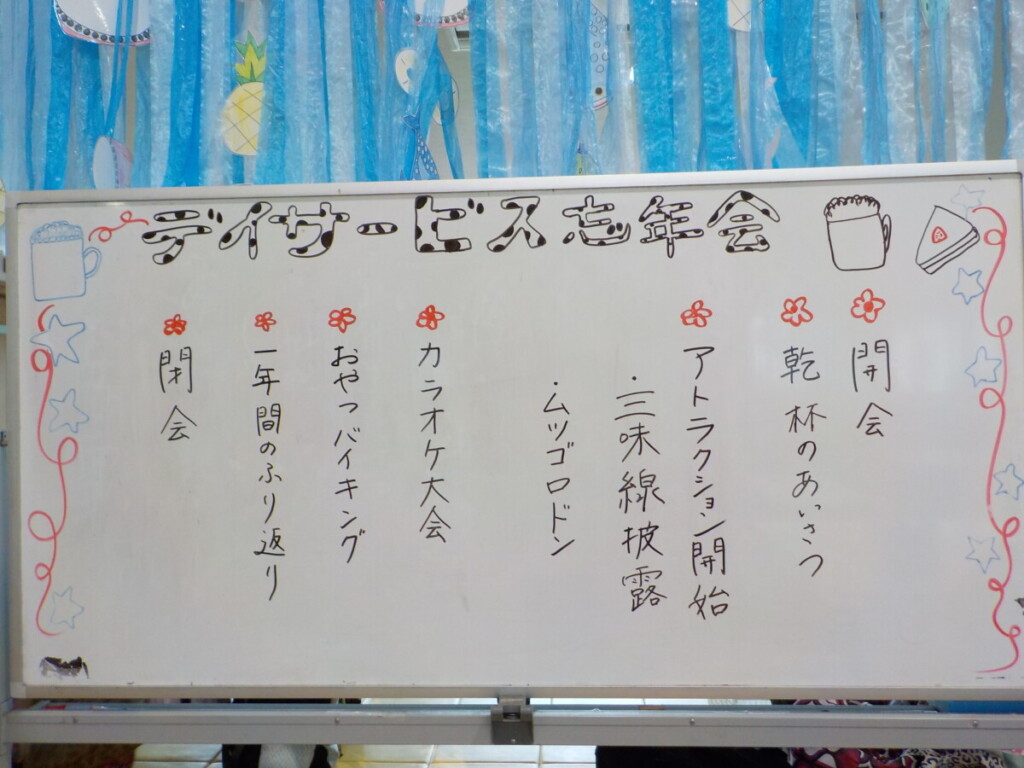 デイサービス忘年会
開会
乾杯のあいさつ
アトラクション開始
・三味線披露
・ムツゴロドン
カラオケ大会
おやつバイキング
一年間のふり返り
閉会